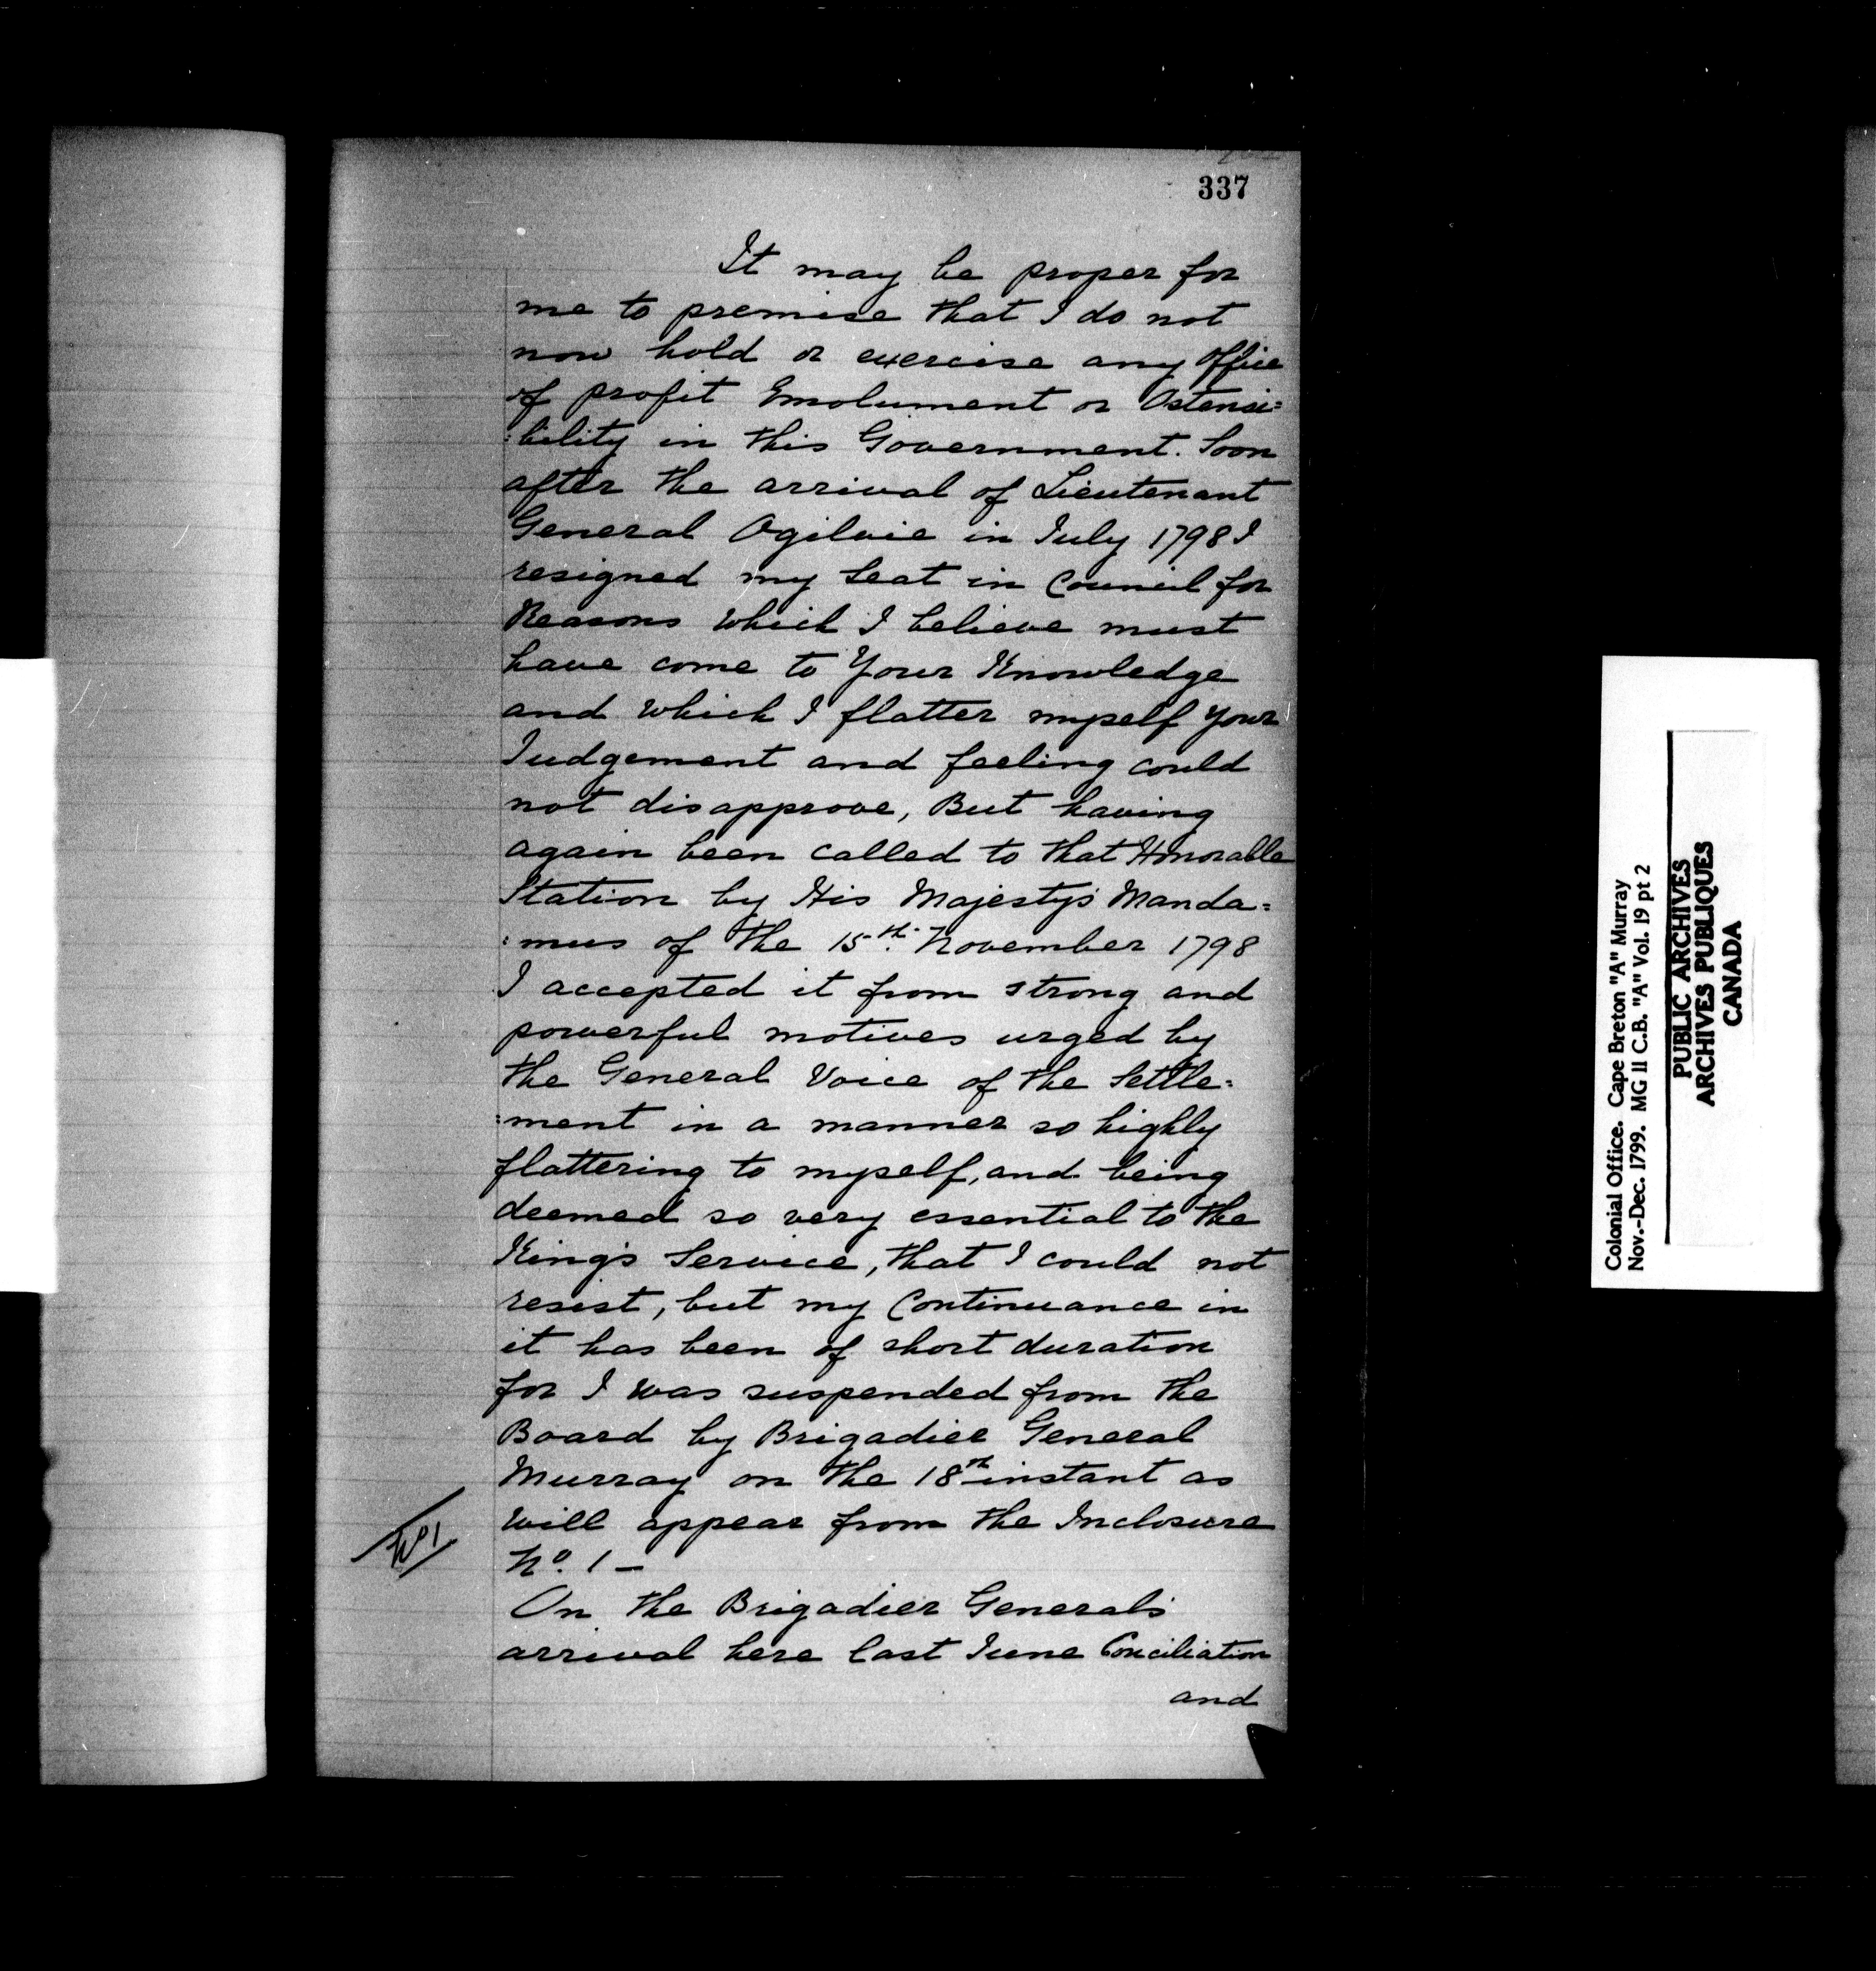 337
It may be proper for
me to premise that I do not
now hold or exercise any Office
of profit Emolument or Ostensi=
:bility in this Government. Soon
after the arrival of Lieutenant
General Ogilvie in July 1798 I
resigned my Seat in Council for
Reasons which I believe must
have come to Your Knowledge
and which I flatter myself Your
Judgement and feeling could
not disapprove, But having
again been called to that Honorable
Station by His Majesty's Manda=
:mus of the 15th. November 1798
I accepted it from strong and
powerful motives urged by
the General Voice of the Settle=
:ment in a manner so highly
flattering to myself, and being
deemed so very essential to the
King's Service, that I could not
resist, but my Continuance in
it has been of short duration
for I was suspended from the
Board by Brigadier General
Murray on the 18th instant as
will appear from the Inclosure
No. 1 –
No 1
On the Brigadier General's
arrival here last June Conciliation
and
Colonial Office. Cape Breton "A" Murray
Nov.-Dec. 1799. MG II C.B. "A" Vol. 19 pt 2
PUBLIC ARCHIVES
ARCHIVES PUBLIQUES
CANADA